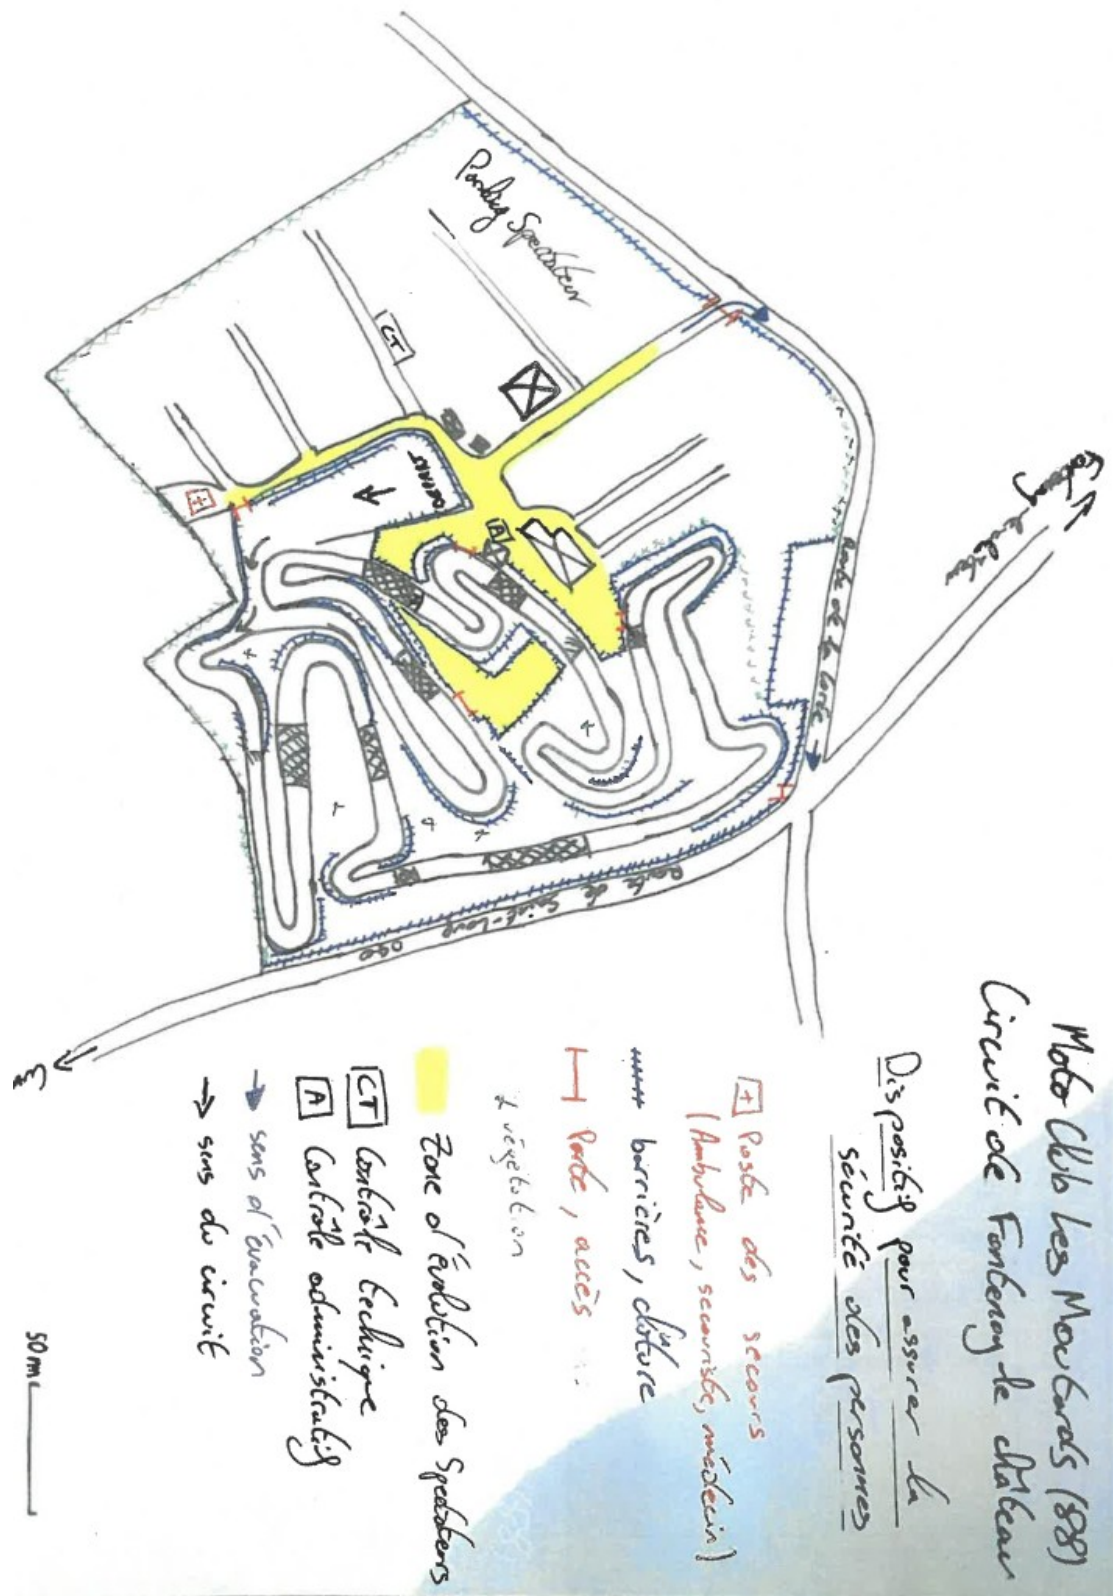 Moto Club Les Moutards (88)
Circuit de Fontenoy-le-château
Dispositif pour assurer la
sécurité des personnes
+ Poste des secours
(Ambulance, secouriste, médecin)
barrières, clôture
Porte, accès
végétation
Zone d'évolution des Spectateurs
CT Contrôle technique
A Contrôle administratif
sens d'évacuation
sens du circuit
50m
Parking Spectateur
CT
DEPART
A
+
Fontenoy-le-château
Route de la
Route de Saint-Loup